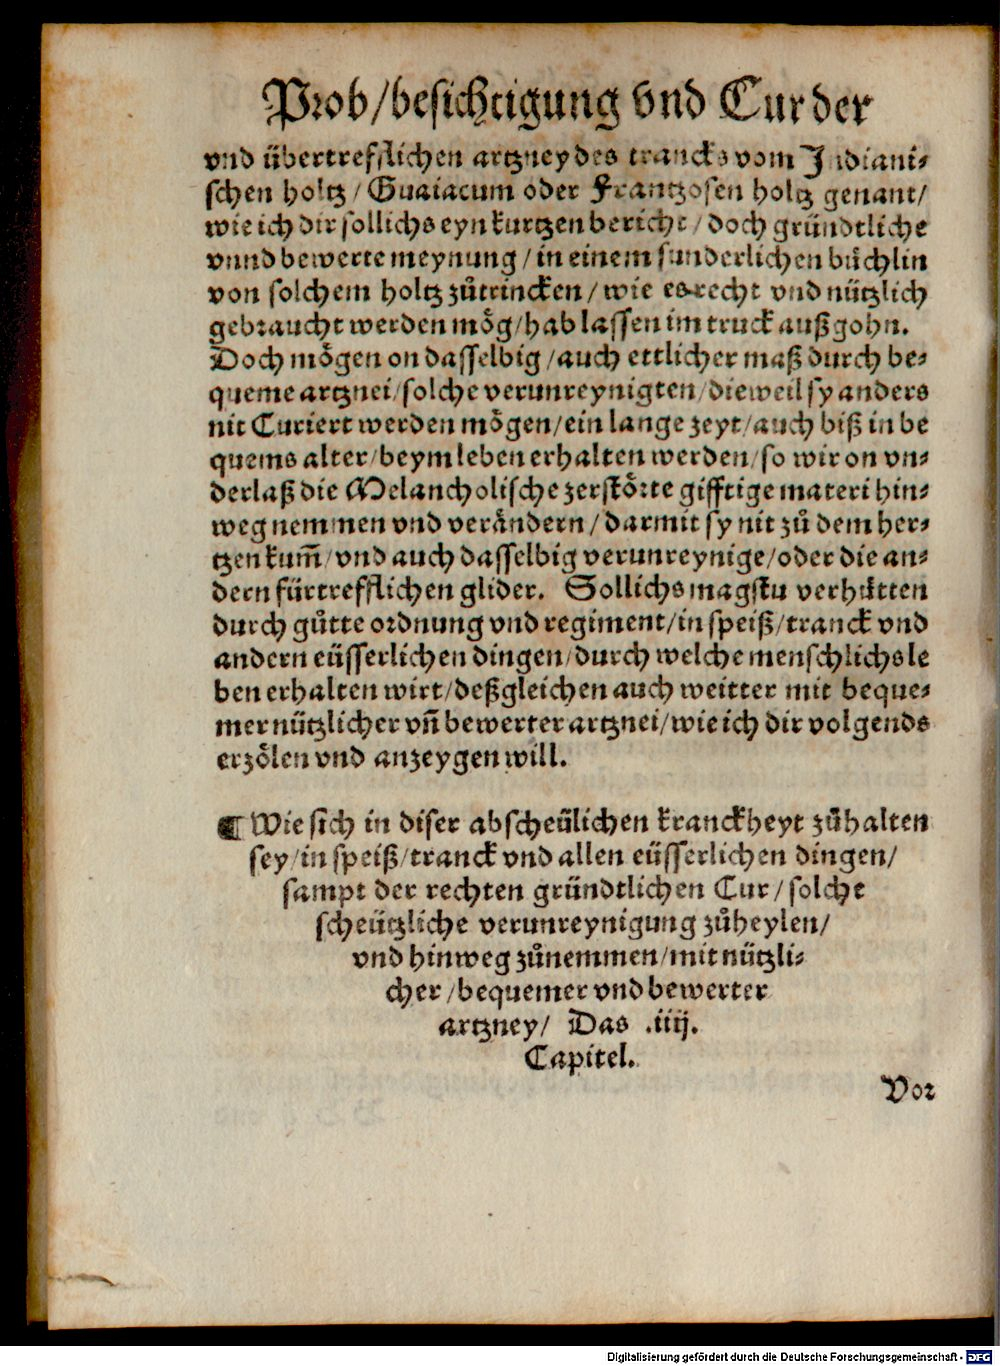 Prob/besichtigung vnd Cur der
vnd übertrefflichen artzney des trancks vom Indiani-
schen holtz/Guaiacum oder Frantzosen holtz genant/
wie ich dir sollichs eyn kurtzen bericht/doch gründtliche
vnnd bewerte meynung/in einem sunderlichen bůchlin
von solchem holtz zůtrincken/wie es recht vnd nützlich
gebraucht werden mög/hab lassen im truck außgohn.
Doch mögen on dasselbig/auch ettlicher maß durch be-
queme artznei/solche verunreynigten/dieweil sy anders
nit Curiert werden mögen/ein lange zeyt/auch biß in be
quems alter/beym leben erhalten werden/so wir on vn-
derlaß die Melancholische zerstörte gifftige materi hin-
weg nemmen vnd verändern/darmit sy nit zů dem her-
tzen kum̃/vnd auch dasselbig verunreynige/oder die an-
dern fürtrefflichen glider. Sollichs magstu verhütten
durch gůtte ordnung vnd regiment/in speiß/tranck vnd
andern eüsserlichen dingen/durch welche menschlichs le
ben erhalten wirt/deßgleichen auch weitter mit beque-
mer nützlicher vn̄ bewerter artznei/wie ich dir volgends
erzölen vnd anzeygen will.
¶ Wie sich in diser abscheülichen kranckheyt zůhalten
sey/in speiß/tranck vnd allen eüsserlichen dingen/
sampt der rechten gründtlichen Cur/solche
scheützliche verunreynigung zůheylen/
vnd hinweg zůnemmen/mit nützli-
cher/bequemer vnd bewerter
artzney/ Das .iiij.
Capitel.
Vor
Digitalisierung gefördert durch die Deutsche Forschungsgemeinschaft - DFG